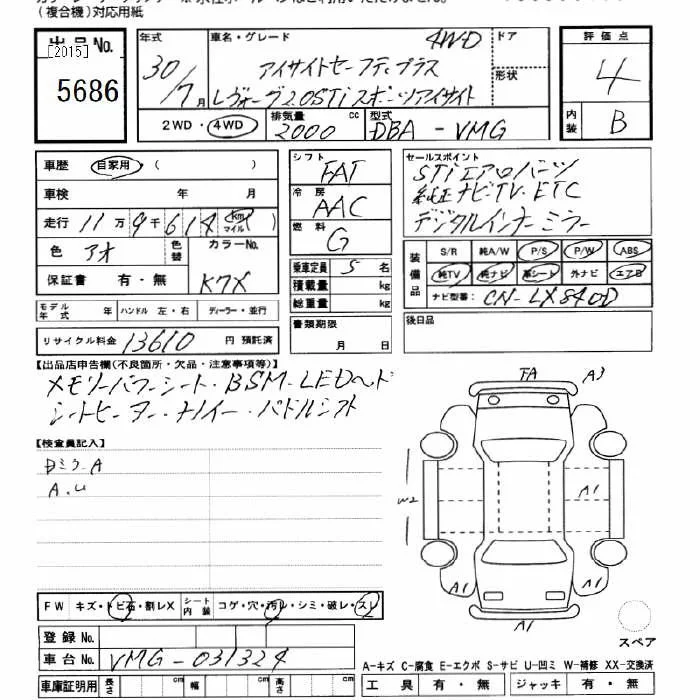 (複合機)対応用紙
出品No.
[2015]
5686
年式
30/7月
車名・グレード
4WD
アイサイトセーフティプラス
レヴォーグ2.0STiスポーツアイサイト
ドア
形状
評価点
4
内装
B
2WD・4WD
排気量
2000
cc
型式
DBA-VMG
車歴
自家用・(　　)
車検
年　月
走行
11万9千614
km
マイル
色
アオ
色替
カラーNo.
K7X
保証書
有・無
モデル年式
年
ハンドル 左・右
ディーラー・並行
リサイクル料金
13610
円 預託済
シフト
FAT
冷房
AAC
燃料
G
乗車定員
5
名
積載量
kg
総重量
kg
書類期限
月　日
セールスポイント
STiエアロパーツ
純正ナビ・TV・ETC
デジタルインナーミラー
装備品
S/R
純A/W
P/S
P/W
ABS
純TV
純ナビ
革シート
外ナビ
エアB
ナビ型番:
CN-LX840D
後日品
【出品店申告欄(不良箇所・欠品・注意事項等)】
メモリーパワーシート・BSM・LEDヘッド
シートヒーター・ナノイー・パドルシフト
【検査員記入】
A.U
FA
A3
W2
A1
A1
A1
A1
A1
スペア
FW
キズ・トビ石・割レX
シート内装
コゲ・穴・汚レ・シミ・破レ・スレ
登録No.
車台No.
VMG-031324
車庫証明用
長さ
cm
幅
cm
高さ
cm
A-キズ C-腐食 E-エクボ S-サビ U-凹ミ W-補修 XX-交換済
工具
有・無
ジャッキ
有・無